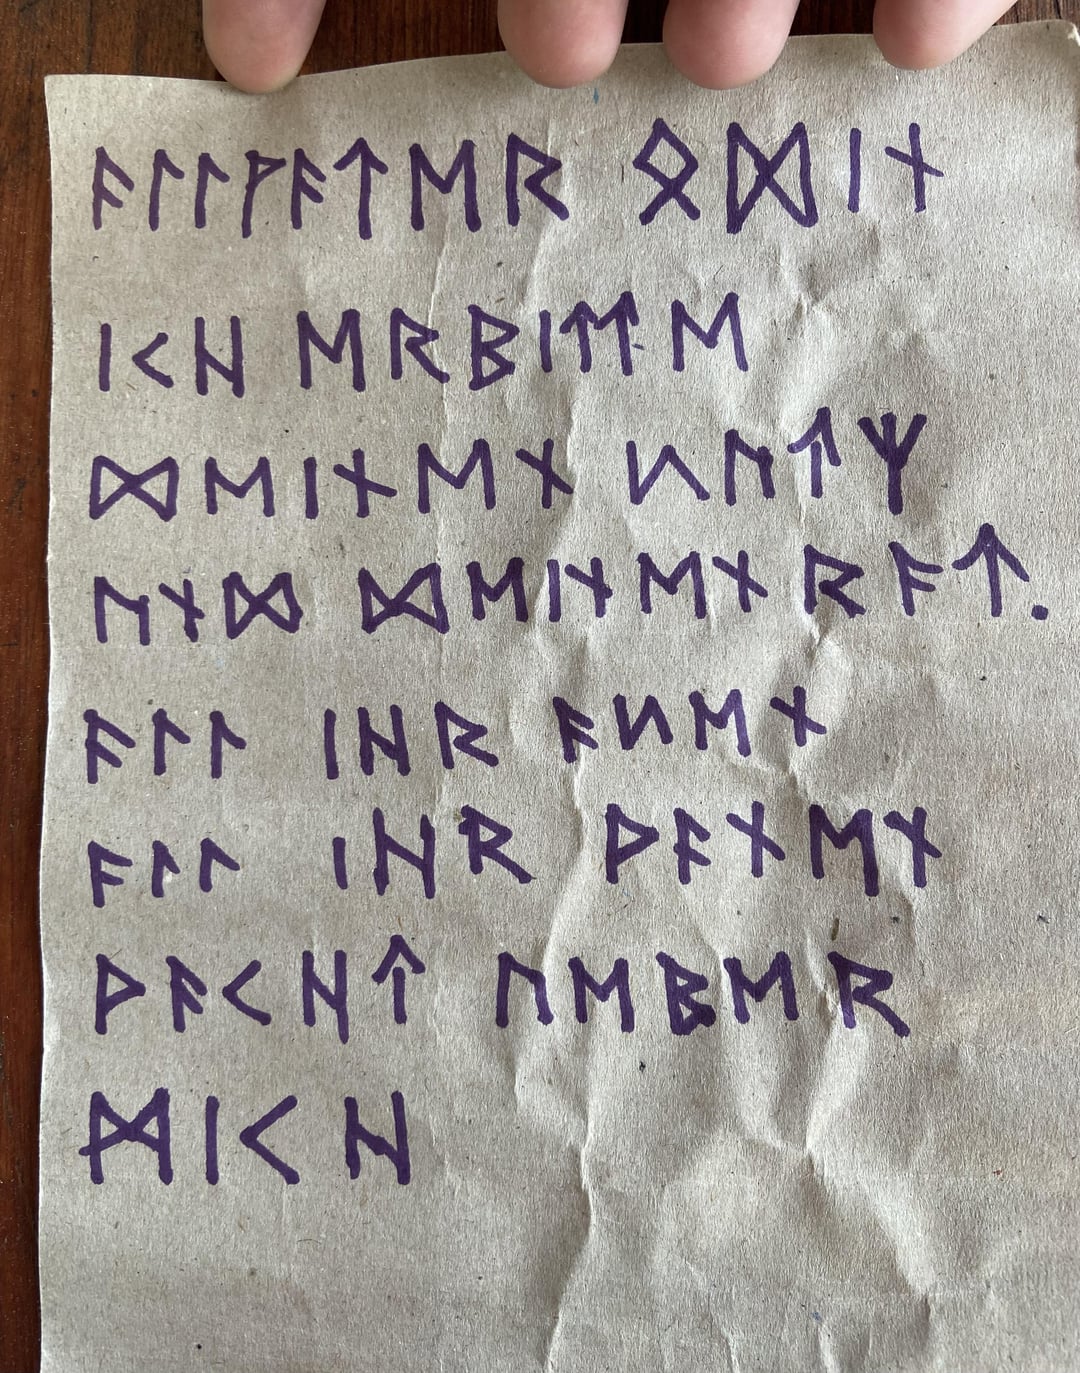 ᚨᛚᛚᚹᚨᛏᛖᚱ ᛟᛞᛁᚾ
ᛁᚲᚺ ᛖᚱᛒᛁᛏᛏᛖ
ᛞᛖᛁᚾᛖᚾ ᛋᚢᛏᛉ
ᚢᚾᛞ ᛞᛖᛁᚾᛖᚾ ᚱᚨᛏ.
ᚨᛚᛚ ᛁᚺᚱ ᚨᛋᛖᚾ
ᚨᛚᛚ ᛁᚺᚱ ᚹᚨᚾᛖᚾ
ᚹᚨᚲᚺᛏ ᚢᛖᛒᛖᚱ
ᛗᛁᚲᚺ